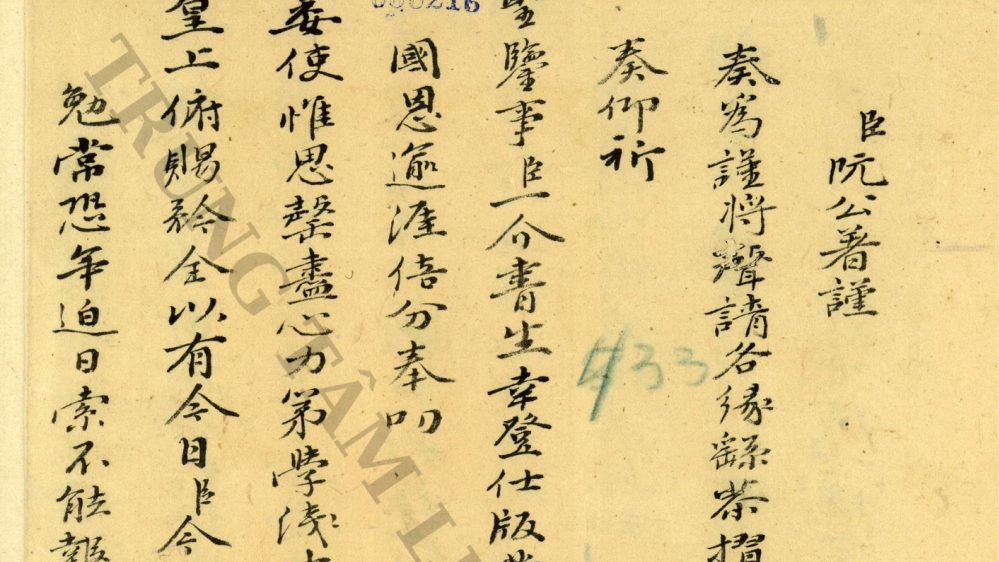 臣阮公著謹
奏為謹將聲請各緣繇恭摺
奏仰祈
聖鑒事臣一介書生幸登仕版
國恩逾涯倍分奉叨
委使惟思罄盡心力第學淺
皇上俯賜矜全以有今日臣今
勉常恐年迫日索不能報
433
000216
TRUNG TÂM